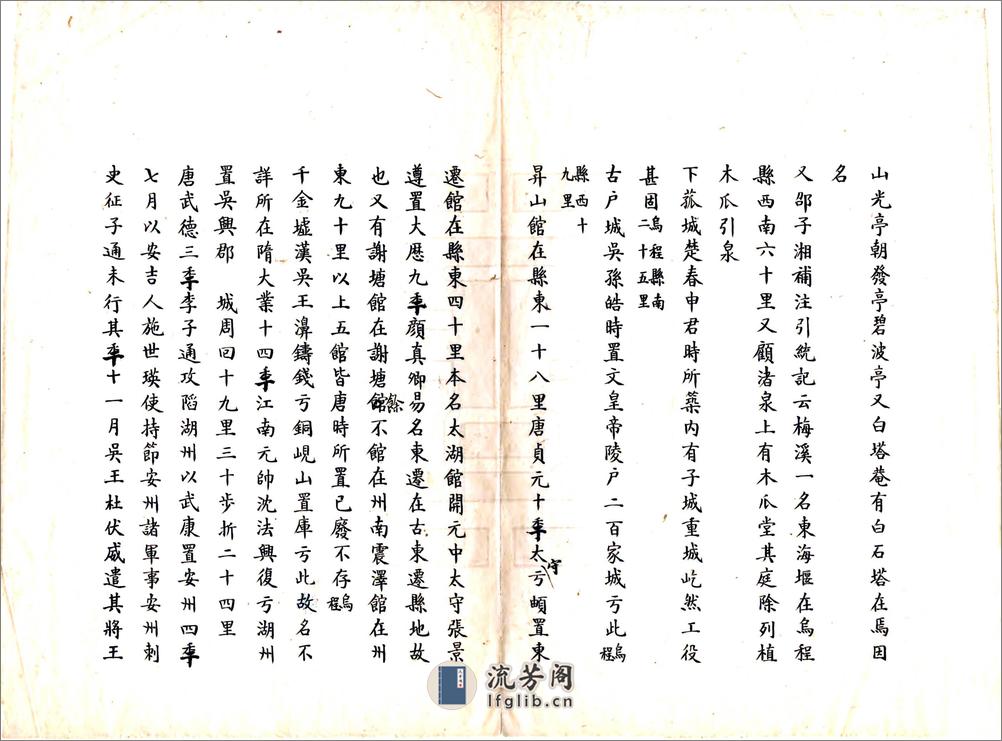 山光亭朝發亭碧波亭又白塔菴有白石塔在馬因
名
又邵子湘補注引統記云梅溪一名東海堰在烏程
縣西南六十里又顧渚泉上有木瓜堂其庭除列植
木瓜引泉
下菰城楚春申君時所築內有子城重城屹然工役
甚固烏程縣南二十五里
古戶城吳孫皓時置文皇帝陵戶二百家城亏此烏程
縣西十九里
昇山館在縣東一十八里唐貞元十秊太守亏頔置東
遷館在縣東四十里本名太湖館開元中太守張景
遵置大厯九秊顏真卿易名東遷在古東遷縣地故
也又有謝塘館在謝塘餘不館在州南震澤館在州
東九十里以上五館皆唐時所置已廢不存烏程
千金墟漢吳王濞鑄錢亏銅峴山置庫亏此故名不
詳所在隋大業十四秊江南元帥沈法興復亏湖州
置吳興郡　城周回十九里三十步折二十四里
唐武德三秊李子通攻䧟湖州以武康置安州四秊
七月以安吉人施世瑛使持節安州諸軍事安州刺
史征子通未行其秊十一月吳王杜伏威遣其將王
流芳阁
lfglib.cn